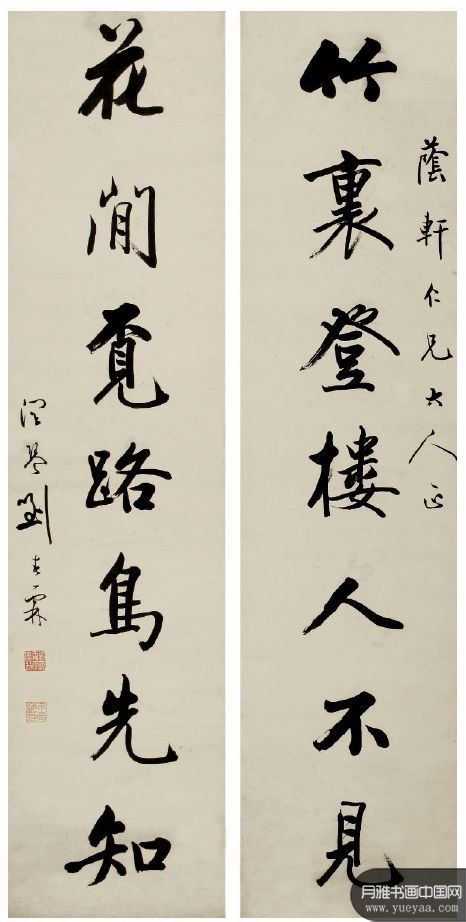 蔭軒仁兄大人正
竹裏登樓人不見
花間覓路鳥先知
潤琴劉春霖
月雅书画中国网
www.yueyaa.com